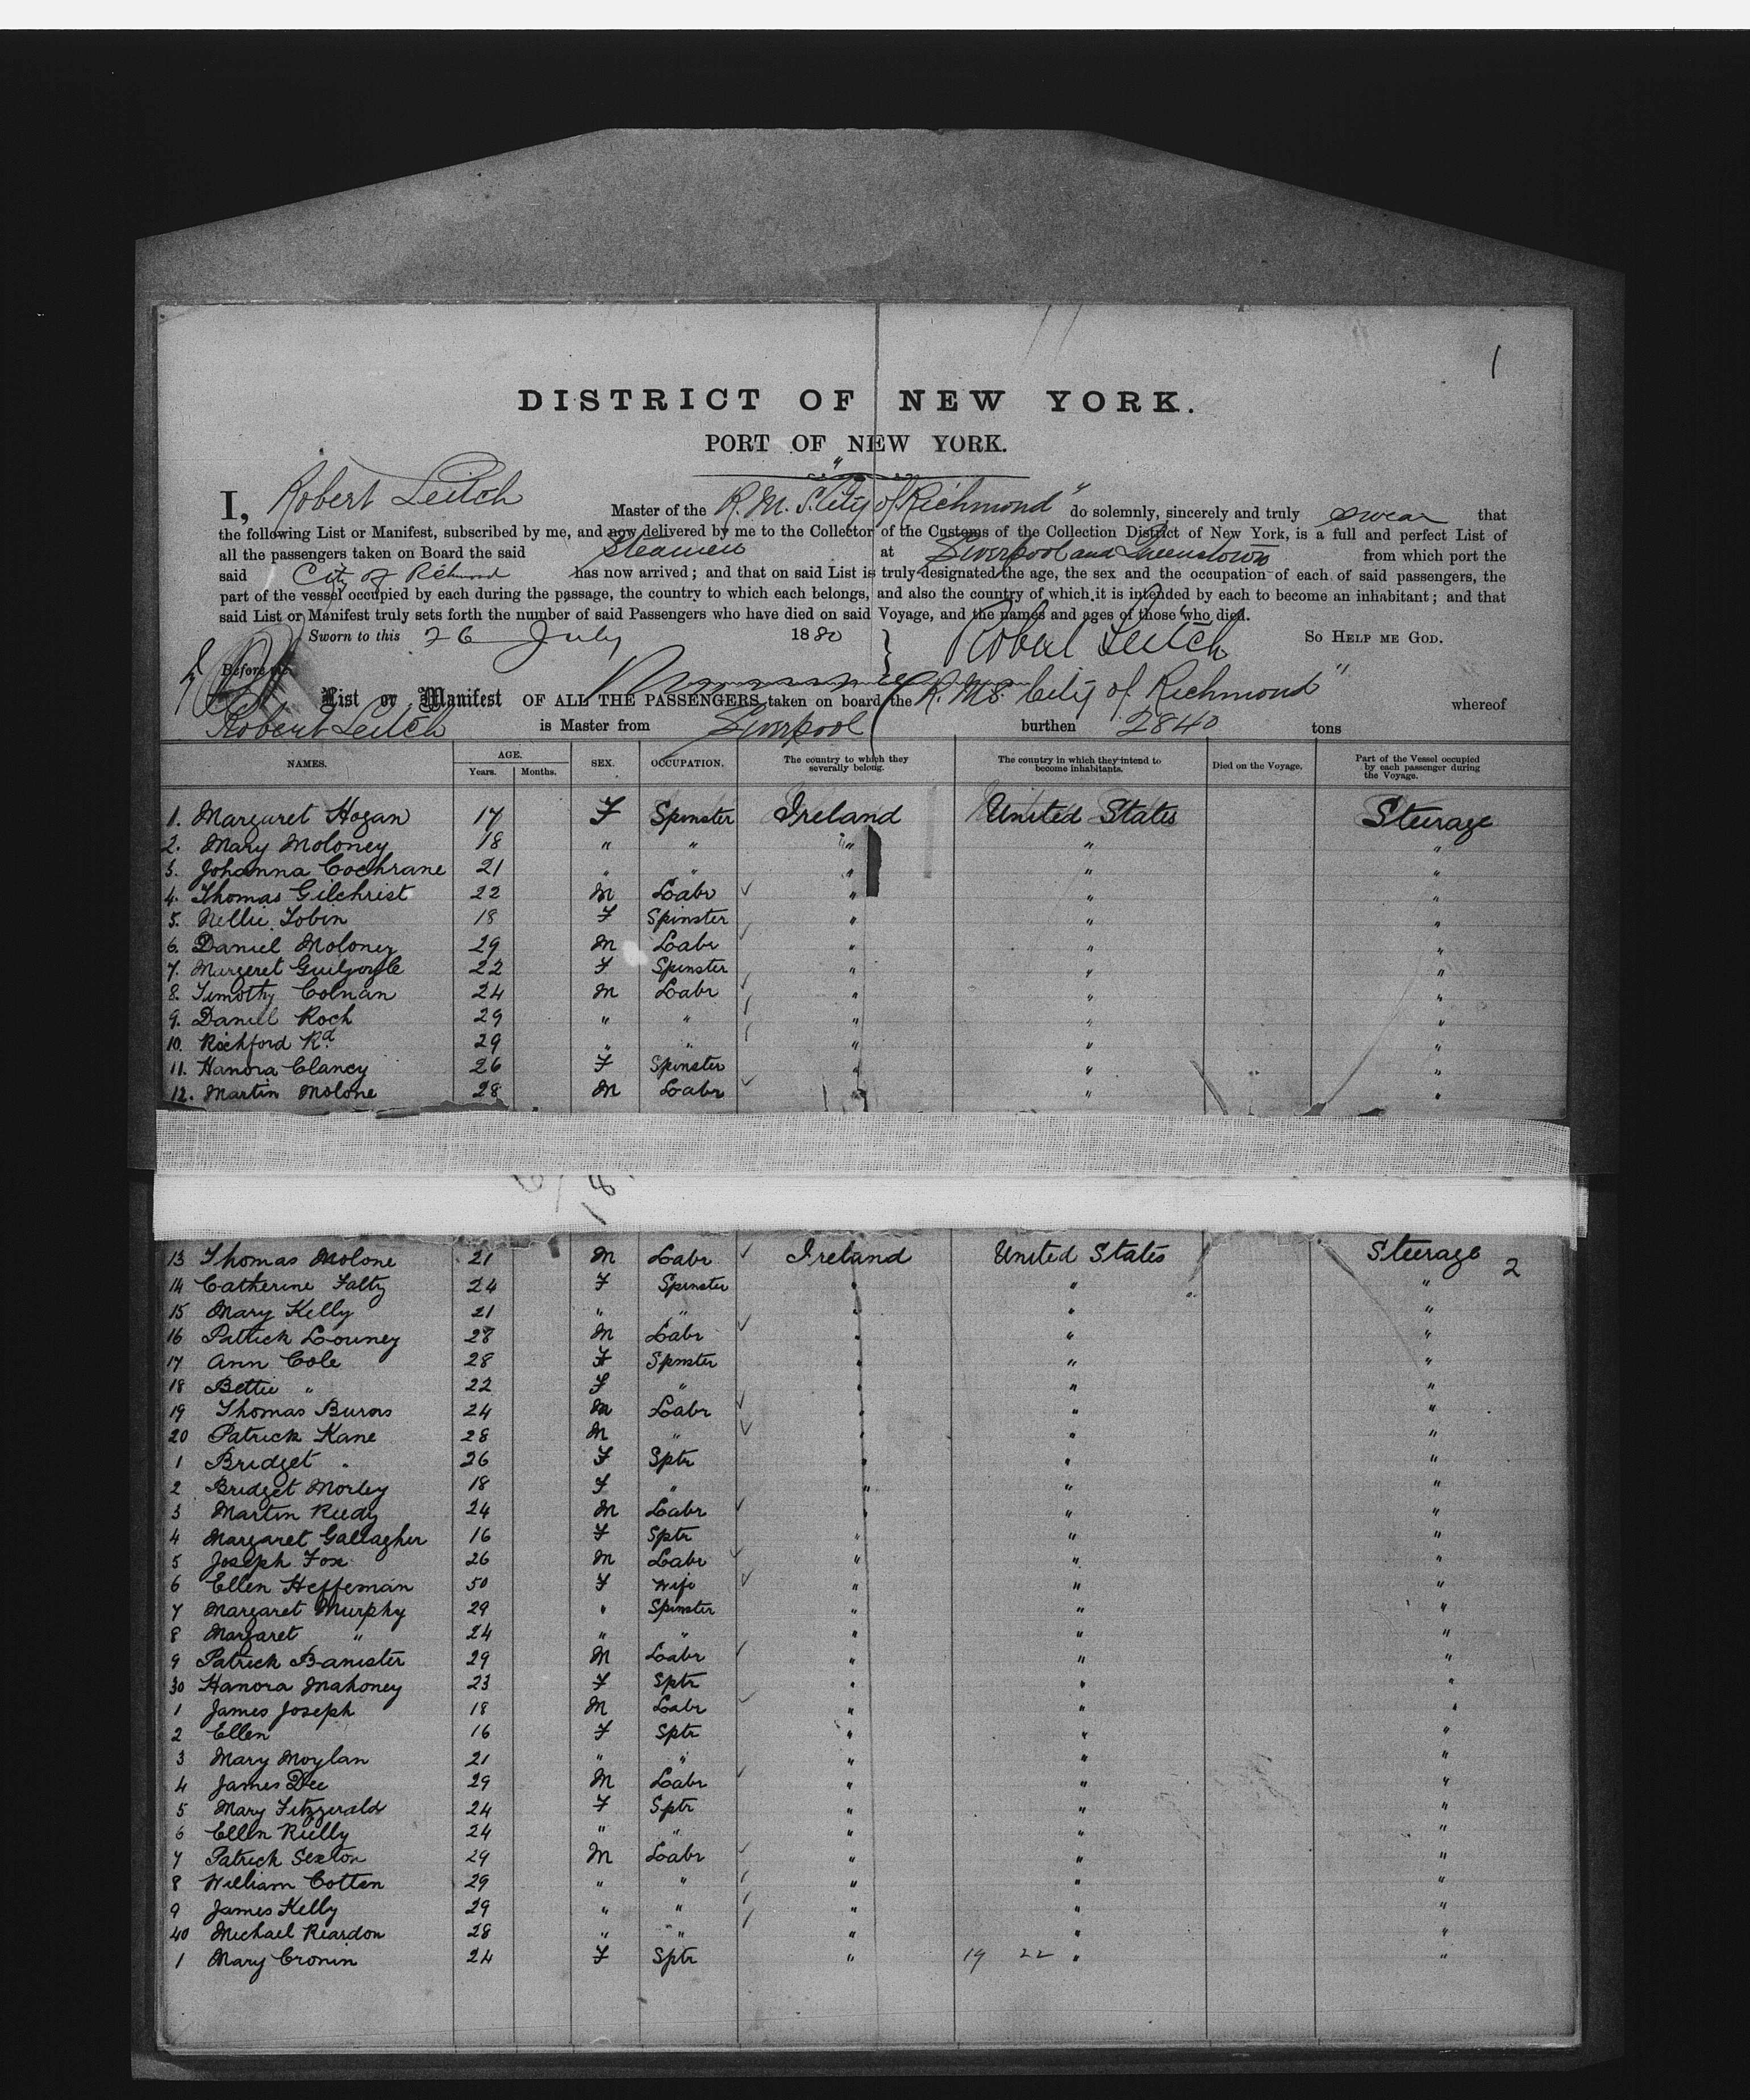 1
DISTRICT OF NEW YORK.
PORT OF NEW YORK.
I, Robert Leitch Master of the R. M. S. "City of Richmond" do solemnly, sincerely and truly swear that
the following List or Manifest, subscribed by me, and now delivered by me to the Collector of the Customs of the Collection District of New York, is a full and perfect List of
all the passengers taken on Board the said Steamer at Liverpool and Queenstown from which port the
said City of Richmond has now arrived; and that on said List is truly designated the age, the sex and the occupation of each of said passengers, the
part of the vessel occupied by each during the passage, the country to which each belongs, and also the country of which it is intended by each to become an inhabitant; and that
said List or Manifest truly sets forth the number of said Passengers who have died on said Voyage, and the names and ages of those who died.
Sworn to this 26 July 1880 } Robert Leitch So HELP ME GOD.
Before me
List or Manifest OF ALL THE PASSENGERS taken on board the R. M. S. City of Richmond" whereof
Robert Leitch is Master from Liverpool burthen 2840 tons
NAMES. AGE. Years. Months. SEX. OCCUPATION. The country to which they severally belong. The country in which they intend to become inhabitants. Died on the Voyage. Part of the Vessel occupied by each passenger during the Voyage.
1. Margaret Hogan 17 F Spinster Ireland United States Steerage
2. Mary Moloney 18 " " " " "
3. Johanna Cochrane 21 " " " " "
4. Thomas Gilchrist 22 M Labr " " "
5. Nellie Tobin 18 F Spinster " " "
6. Daniel Moloney 29 M Labr " " "
7. Margeret Guilfoyle 22 F Spinster " " "
8. Timothy Colnan 24 M Labr " " "
9. Daniel Roch 29 " " " " "
10. Rochford Rd 29 " " " " "
11. Hanora Clancy 26 F Spinster " " "
12. Martin Molone 28 M Labr " " "
13 Thomas Molone 21 M Labr Ireland United States Steerage 2
14 Catherine Falty 24 F Spinster " " "
15 Mary Kelly 21 " " " " "
16 Patrick Louney 28 M Labr " " "
17 Ann Cole 28 F Spinster " " "
18 Bettie " 22 F " " " "
19 Thomas Burns 24 M Labr " " "
20 Patrick Kane 28 M " " " "
1 Bridget " 26 F Sptr " " "
2 Bridget Morley 18 F " " " "
3 Martin Reedy 24 M Labr " " "
4 Margaret Gallagher 16 F Sptr " " "
5 Joseph Fox 26 M Labr " " "
6 Ellen Heffernan 50 F Wife " " "
7 Margaret Murphy 29 " Spinster " " "
8 Margaret " 24 " " " " "
9 Patrick Banister 29 M Labr " " "
30 Hanora Mahoney 23 F Sptr " " "
1 James Joseph 18 M Labr " " "
2 Ellen 16 F Sptr " " "
3 Mary Moylan 21 " " " " "
4 James Dee 29 M Labr " " "
5 Mary Fitzgerald 24 F Sptr " " "
6 Ellen Rielly 24 " " " " "
7 Patrick Sexton 29 M Labr " " "
8 William Cotten 29 " " " " "
9 James Kelly 29 " " " " "
40 Michael Reardon 28 " " " " "
1 Mary Cronin 24 F Sptr " 19 22 " "